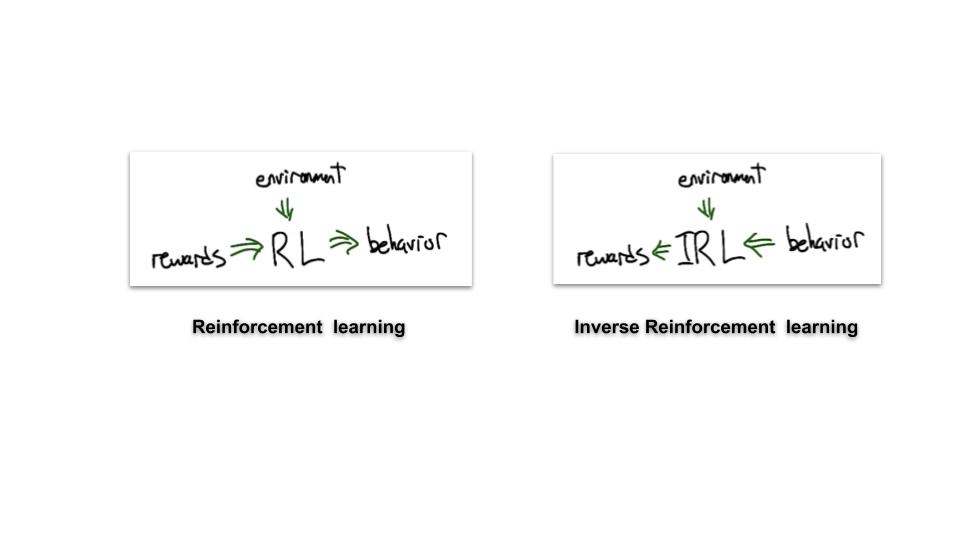 environment
rewards RL behavior
Reinforcement learning
environment
rewards IRL behavior
Inverse Reinforcement learning